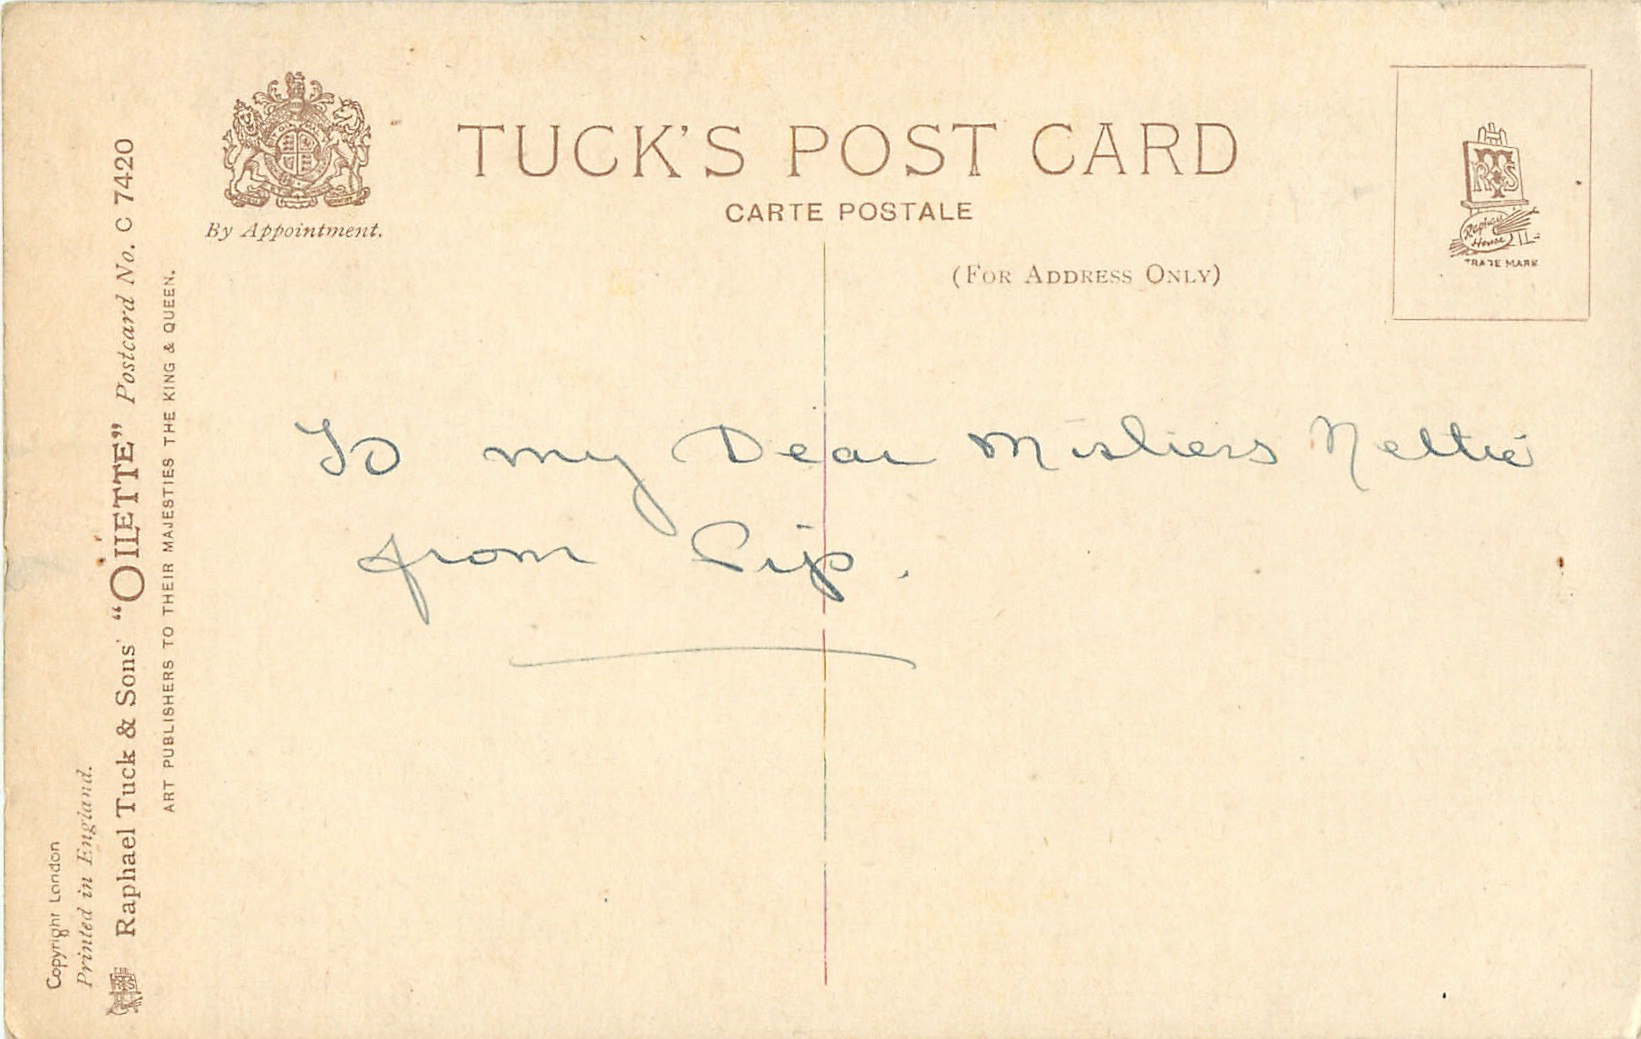 TUCK'S POST CARD
CARTE POSTALE
(FOR ADDRESS ONLY)
By Appointment.
RTS
Raphael House
TRADE MARK
To my Dear Mistiers Nettie
from Pip.
Copyright London
Printed in England.
Raphael Tuck & Sons' "OILETTE" Postcard No. C 7420
ART PUBLISHERS TO THEIR MAJESTIES THE KING & QUEEN.